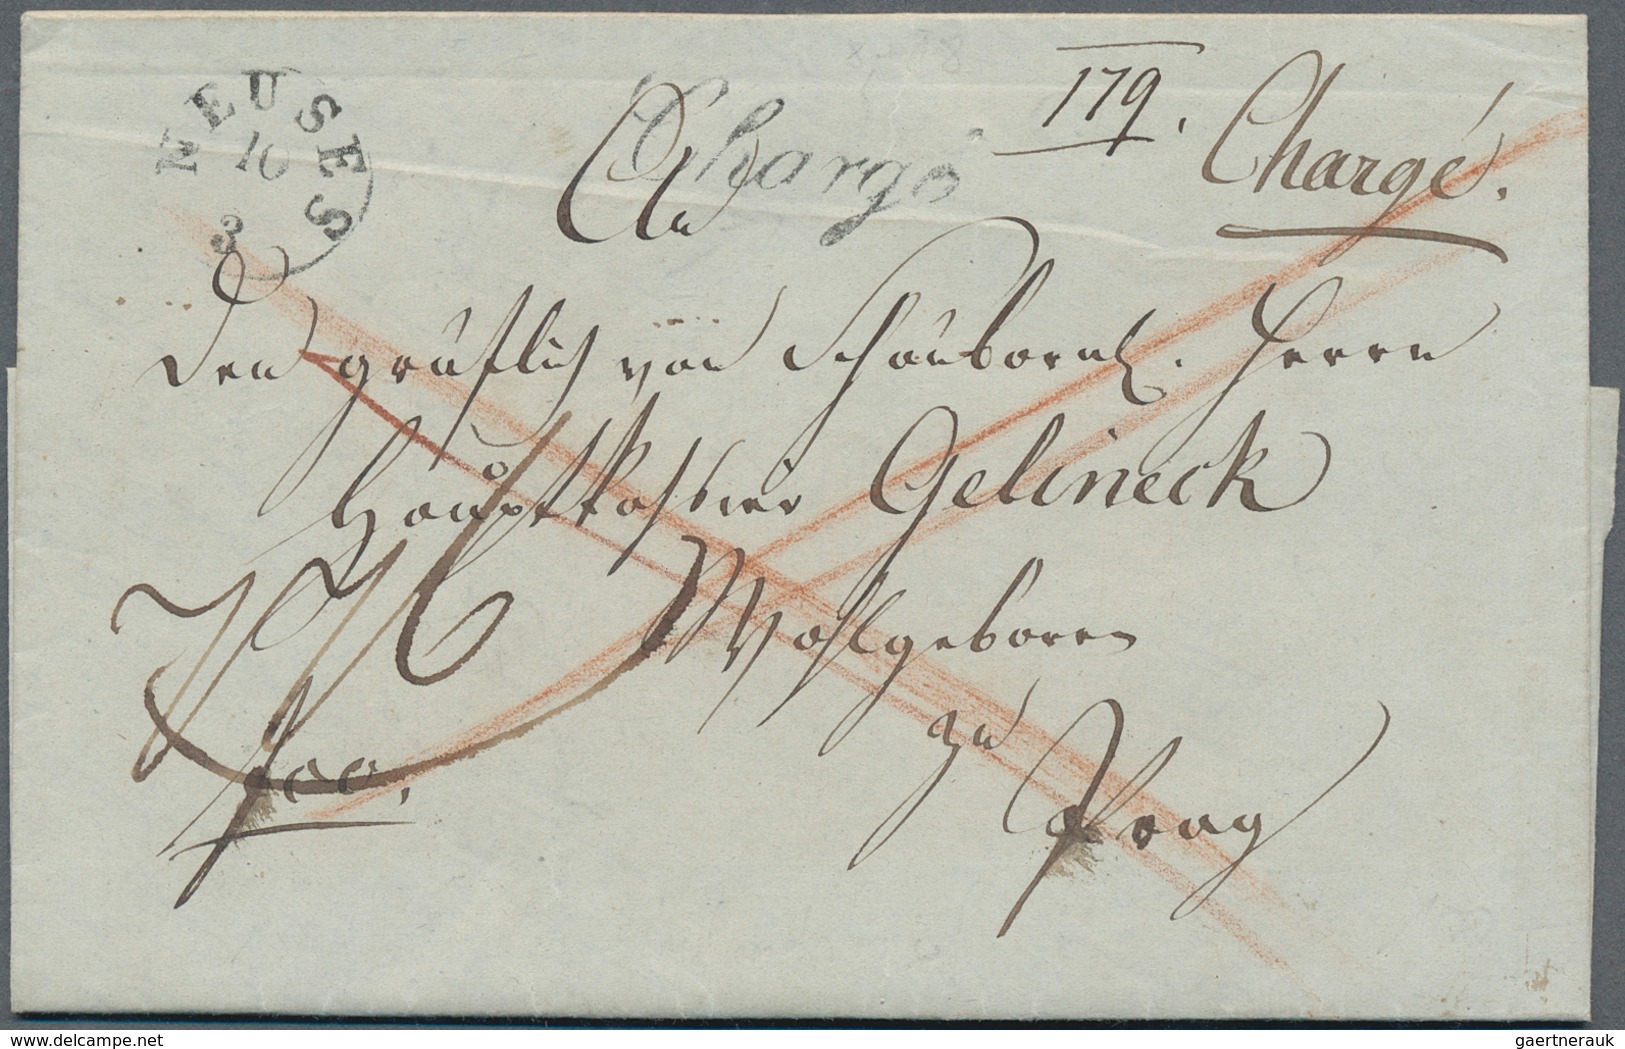 NEUSES
10
3
Chargé
179.
Chargé.
An
den gräflich von Schönbornl. Herrn
Hauptkassier Gelineck
Wohlgeboren
zu
Prag
fco.
www.delcampe.net
gaertnerauk